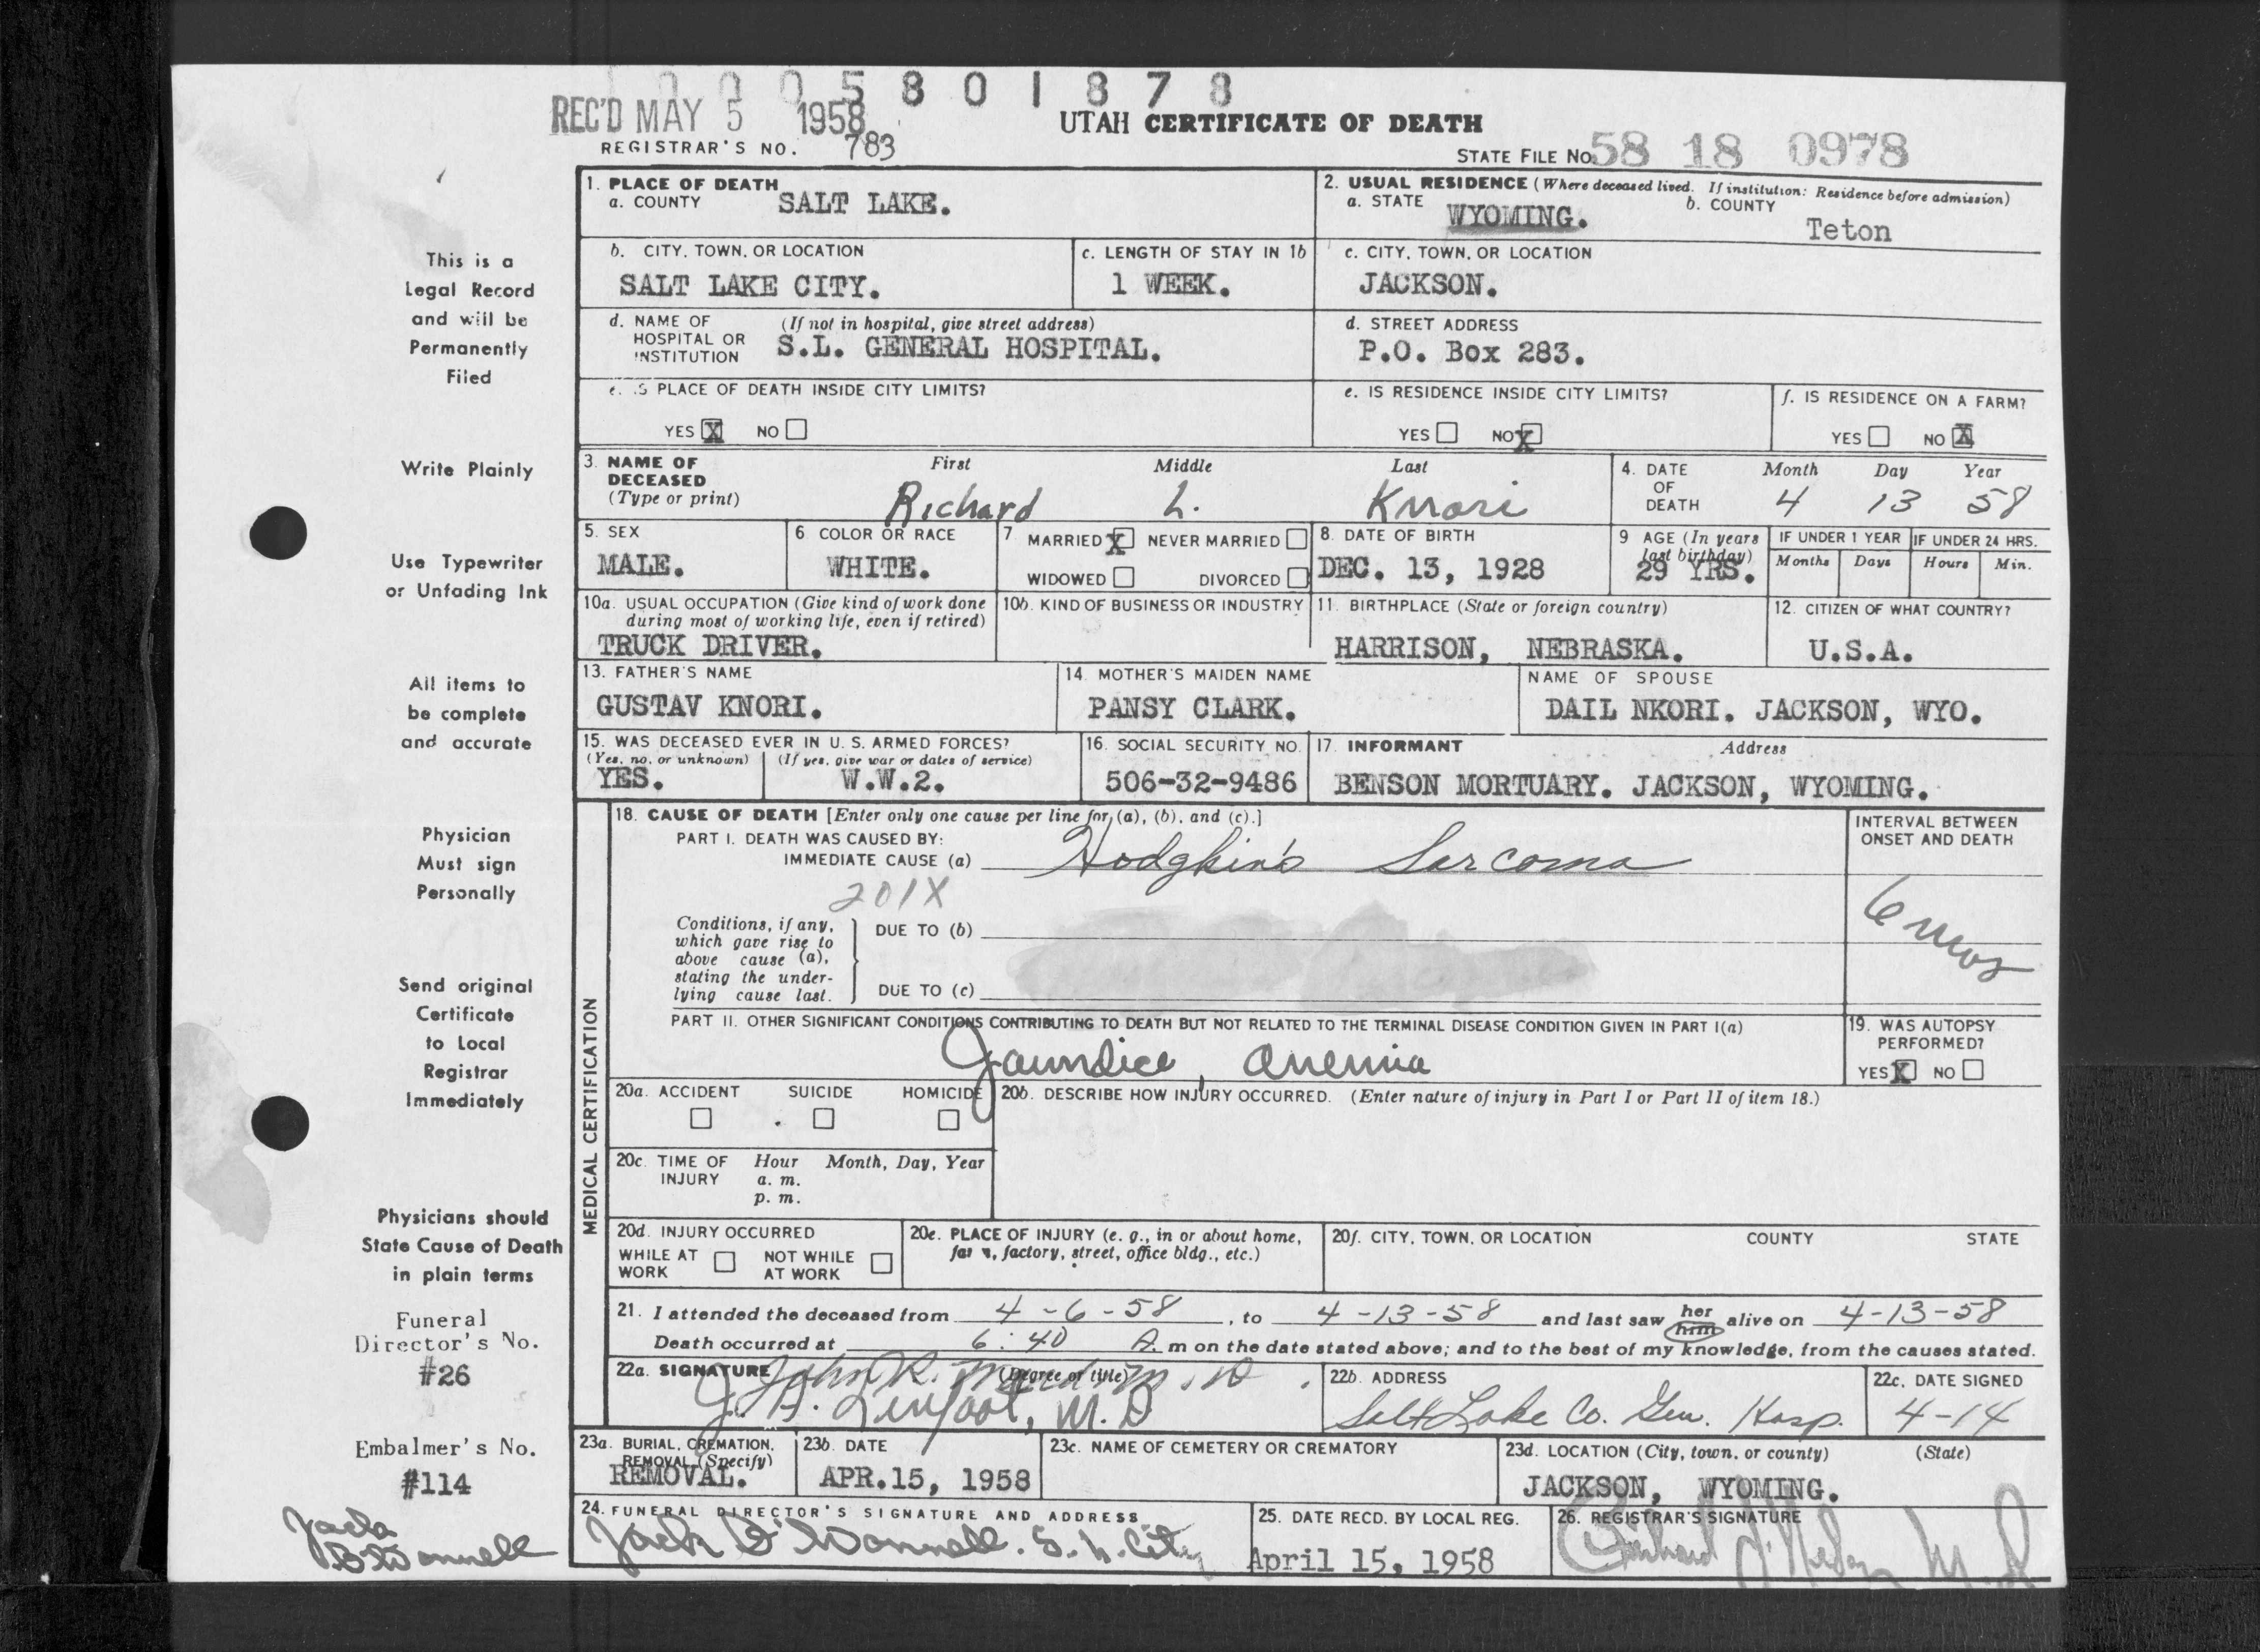 0 0 0 5 8 0 1 8 7 8
REC'D MAY 5 1958
UTAH CERTIFICATE OF DEATH
REGISTRAR'S NO. 783
STATE FILE No. 58 18 0978
1. PLACE OF DEATH
a. COUNTY SALT LAKE.
2. USUAL RESIDENCE (Where deceased lived. If institution: Residence before admission)
a. STATE WYOMING. b. COUNTY Teton
b. CITY, TOWN, OR LOCATION
SALT LAKE CITY.
c. LENGTH OF STAY IN 1b
1 WEEK.
c. CITY, TOWN, OR LOCATION
JACKSON.
d. NAME OF HOSPITAL OR INSTITUTION (If not in hospital, give street address)
S.L. GENERAL HOSPITAL.
d. STREET ADDRESS
P.O. Box 283.
e. IS PLACE OF DEATH INSIDE CITY LIMITS?
YES X NO
e. IS RESIDENCE INSIDE CITY LIMITS?
YES NO X
f. IS RESIDENCE ON A FARM?
YES NO X
3. NAME OF DECEASED (Type or print)
First Middle Last
Richard L. Knori
4. DATE OF DEATH
Month Day Year
4 13 58
5. SEX
MALE.
6 COLOR OR RACE
WHITE.
7 MARRIED X NEVER MARRIED
WIDOWED DIVORCED
8. DATE OF BIRTH
DEC. 13, 1928
9 AGE (In years last birthday)
29 YRS.
IF UNDER 1 YEAR
Months Days
IF UNDER 24 HRS.
Hours Min.
10a. USUAL OCCUPATION (Give kind of work done during most of working life, even if retired)
TRUCK DRIVER.
10b. KIND OF BUSINESS OR INDUSTRY
11. BIRTHPLACE (State or foreign country)
HARRISON, NEBRASKA.
12. CITIZEN OF WHAT COUNTRY?
U.S.A.
13. FATHER'S NAME
GUSTAV KNORI.
14. MOTHER'S MAIDEN NAME
PANSY CLARK.
NAME OF SPOUSE
DAIL NKORI. JACKSON, WYO.
15. WAS DECEASED EVER IN U. S. ARMED FORCES?
(Yes, no, or unknown) (If yes, give war or dates of service)
YES. W.W.2.
16. SOCIAL SECURITY NO.
506-32-9486
17. INFORMANT Address
BENSON MORTUARY. JACKSON, WYOMING.
MEDICAL CERTIFICATION
18. CAUSE OF DEATH [Enter only one cause per line for (a), (b), and (c).]
PART I. DEATH WAS CAUSED BY:
IMMEDIATE CAUSE (a) Hodgkin's Sarcoma
201X
Conditions, if any, which gave rise to above cause (a), stating the underlying cause last.
DUE TO (b)
DUE TO (c)
INTERVAL BETWEEN ONSET AND DEATH
6 mos
PART II. OTHER SIGNIFICANT CONDITIONS CONTRIBUTING TO DEATH BUT NOT RELATED TO THE TERMINAL DISEASE CONDITION GIVEN IN PART I(a)
Jaundice, anemia
19. WAS AUTOPSY PERFORMED?
YES X NO
20a. ACCIDENT SUICIDE HOMICIDE
20b. DESCRIBE HOW INJURY OCCURRED. (Enter nature of injury in Part I or Part II of item 18.)
20c. TIME OF INJURY Hour Month, Day, Year
a. m.
p. m.
20d. INJURY OCCURRED
WHILE AT WORK NOT WHILE AT WORK
20e. PLACE OF INJURY (e. g., in or about home, farm, factory, street, office bldg., etc.)
20f. CITY, TOWN, OR LOCATION COUNTY STATE
21. I attended the deceased from 4-6-58, to 4-13-58 and last saw her him alive on 4-13-58
Death occurred at 6:40 A. m on the date stated above; and to the best of my knowledge, from the causes stated.
22a. SIGNATURE (Degree or title)
John R. M.D.
J. H. Linfoot, M.D
22b. ADDRESS
Salt Lake Co. Gen. Hosp.
22c. DATE SIGNED
4-14
23a. BURIAL, CREMATION, REMOVAL (Specify)
REMOVAL.
23b. DATE
APR.15, 1958
23c. NAME OF CEMETERY OR CREMATORY
23d. LOCATION (City, town, or county) (State)
JACKSON, WYOMING.
24. FUNERAL DIRECTOR'S SIGNATURE AND ADDRESS
Jack O'Donnell. S. L. City
25. DATE RECD. BY LOCAL REG.
April 15, 1958
26. REGISTRAR'S SIGNATURE
M.D.
This is a
Legal Record
and will be
Permanently
Filed
Write Plainly
Use Typewriter
or Unfading Ink
All items to
be complete
and accurate
Physician
Must sign
Personally
Send original
Certificate
to Local
Registrar
Immediately
Physicians should
State Cause of Death
in plain terms
Funeral
Director's No.
#26
Embalmer's No.
#114
Jack
O'Donnell